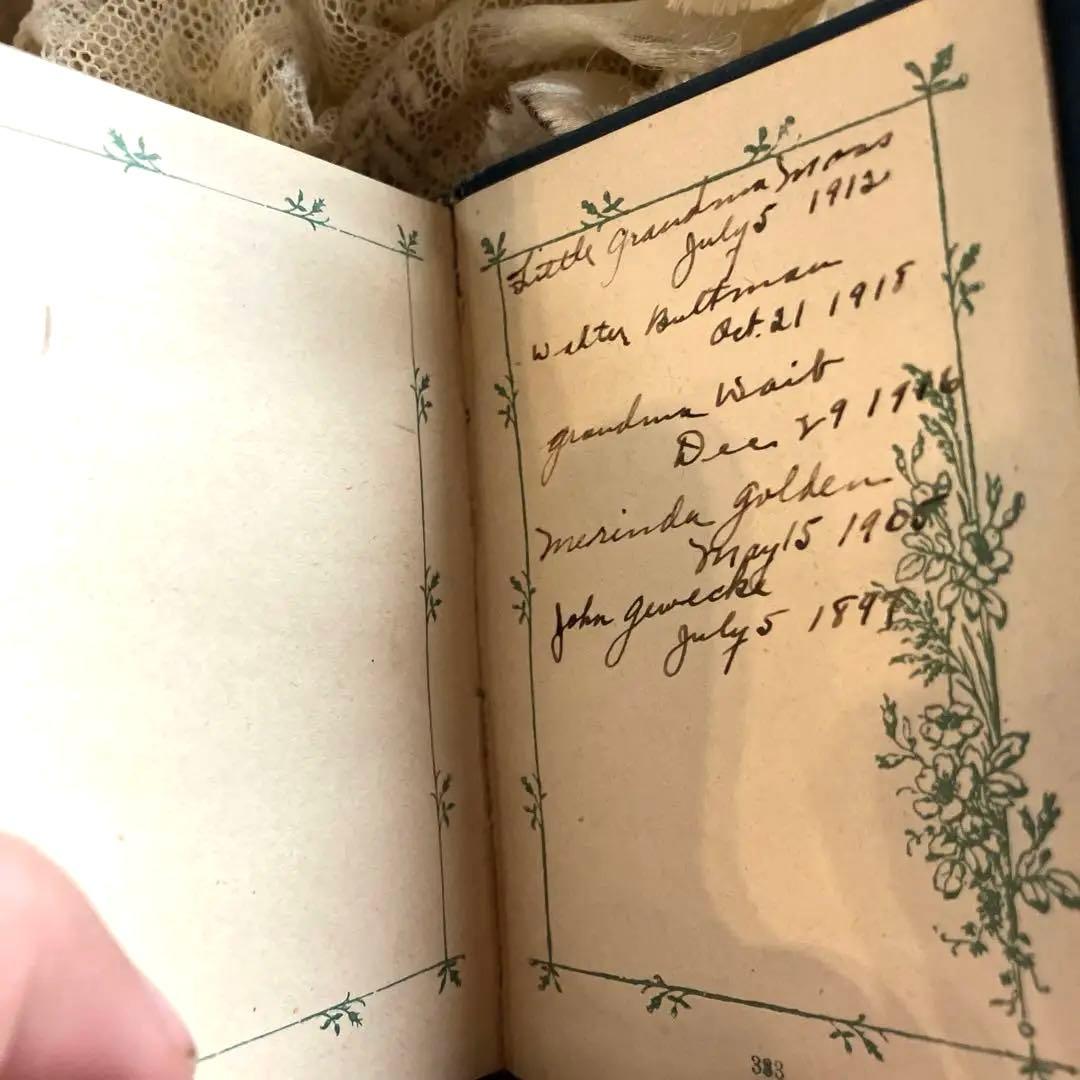 Little Grandma Moss
July 5 1912
Walter Bultman
Oct. 21 1918
Grandma Wait
Dec 29
Merinda Golden
May 15 1905
John Gewecke
July 5 1897
333